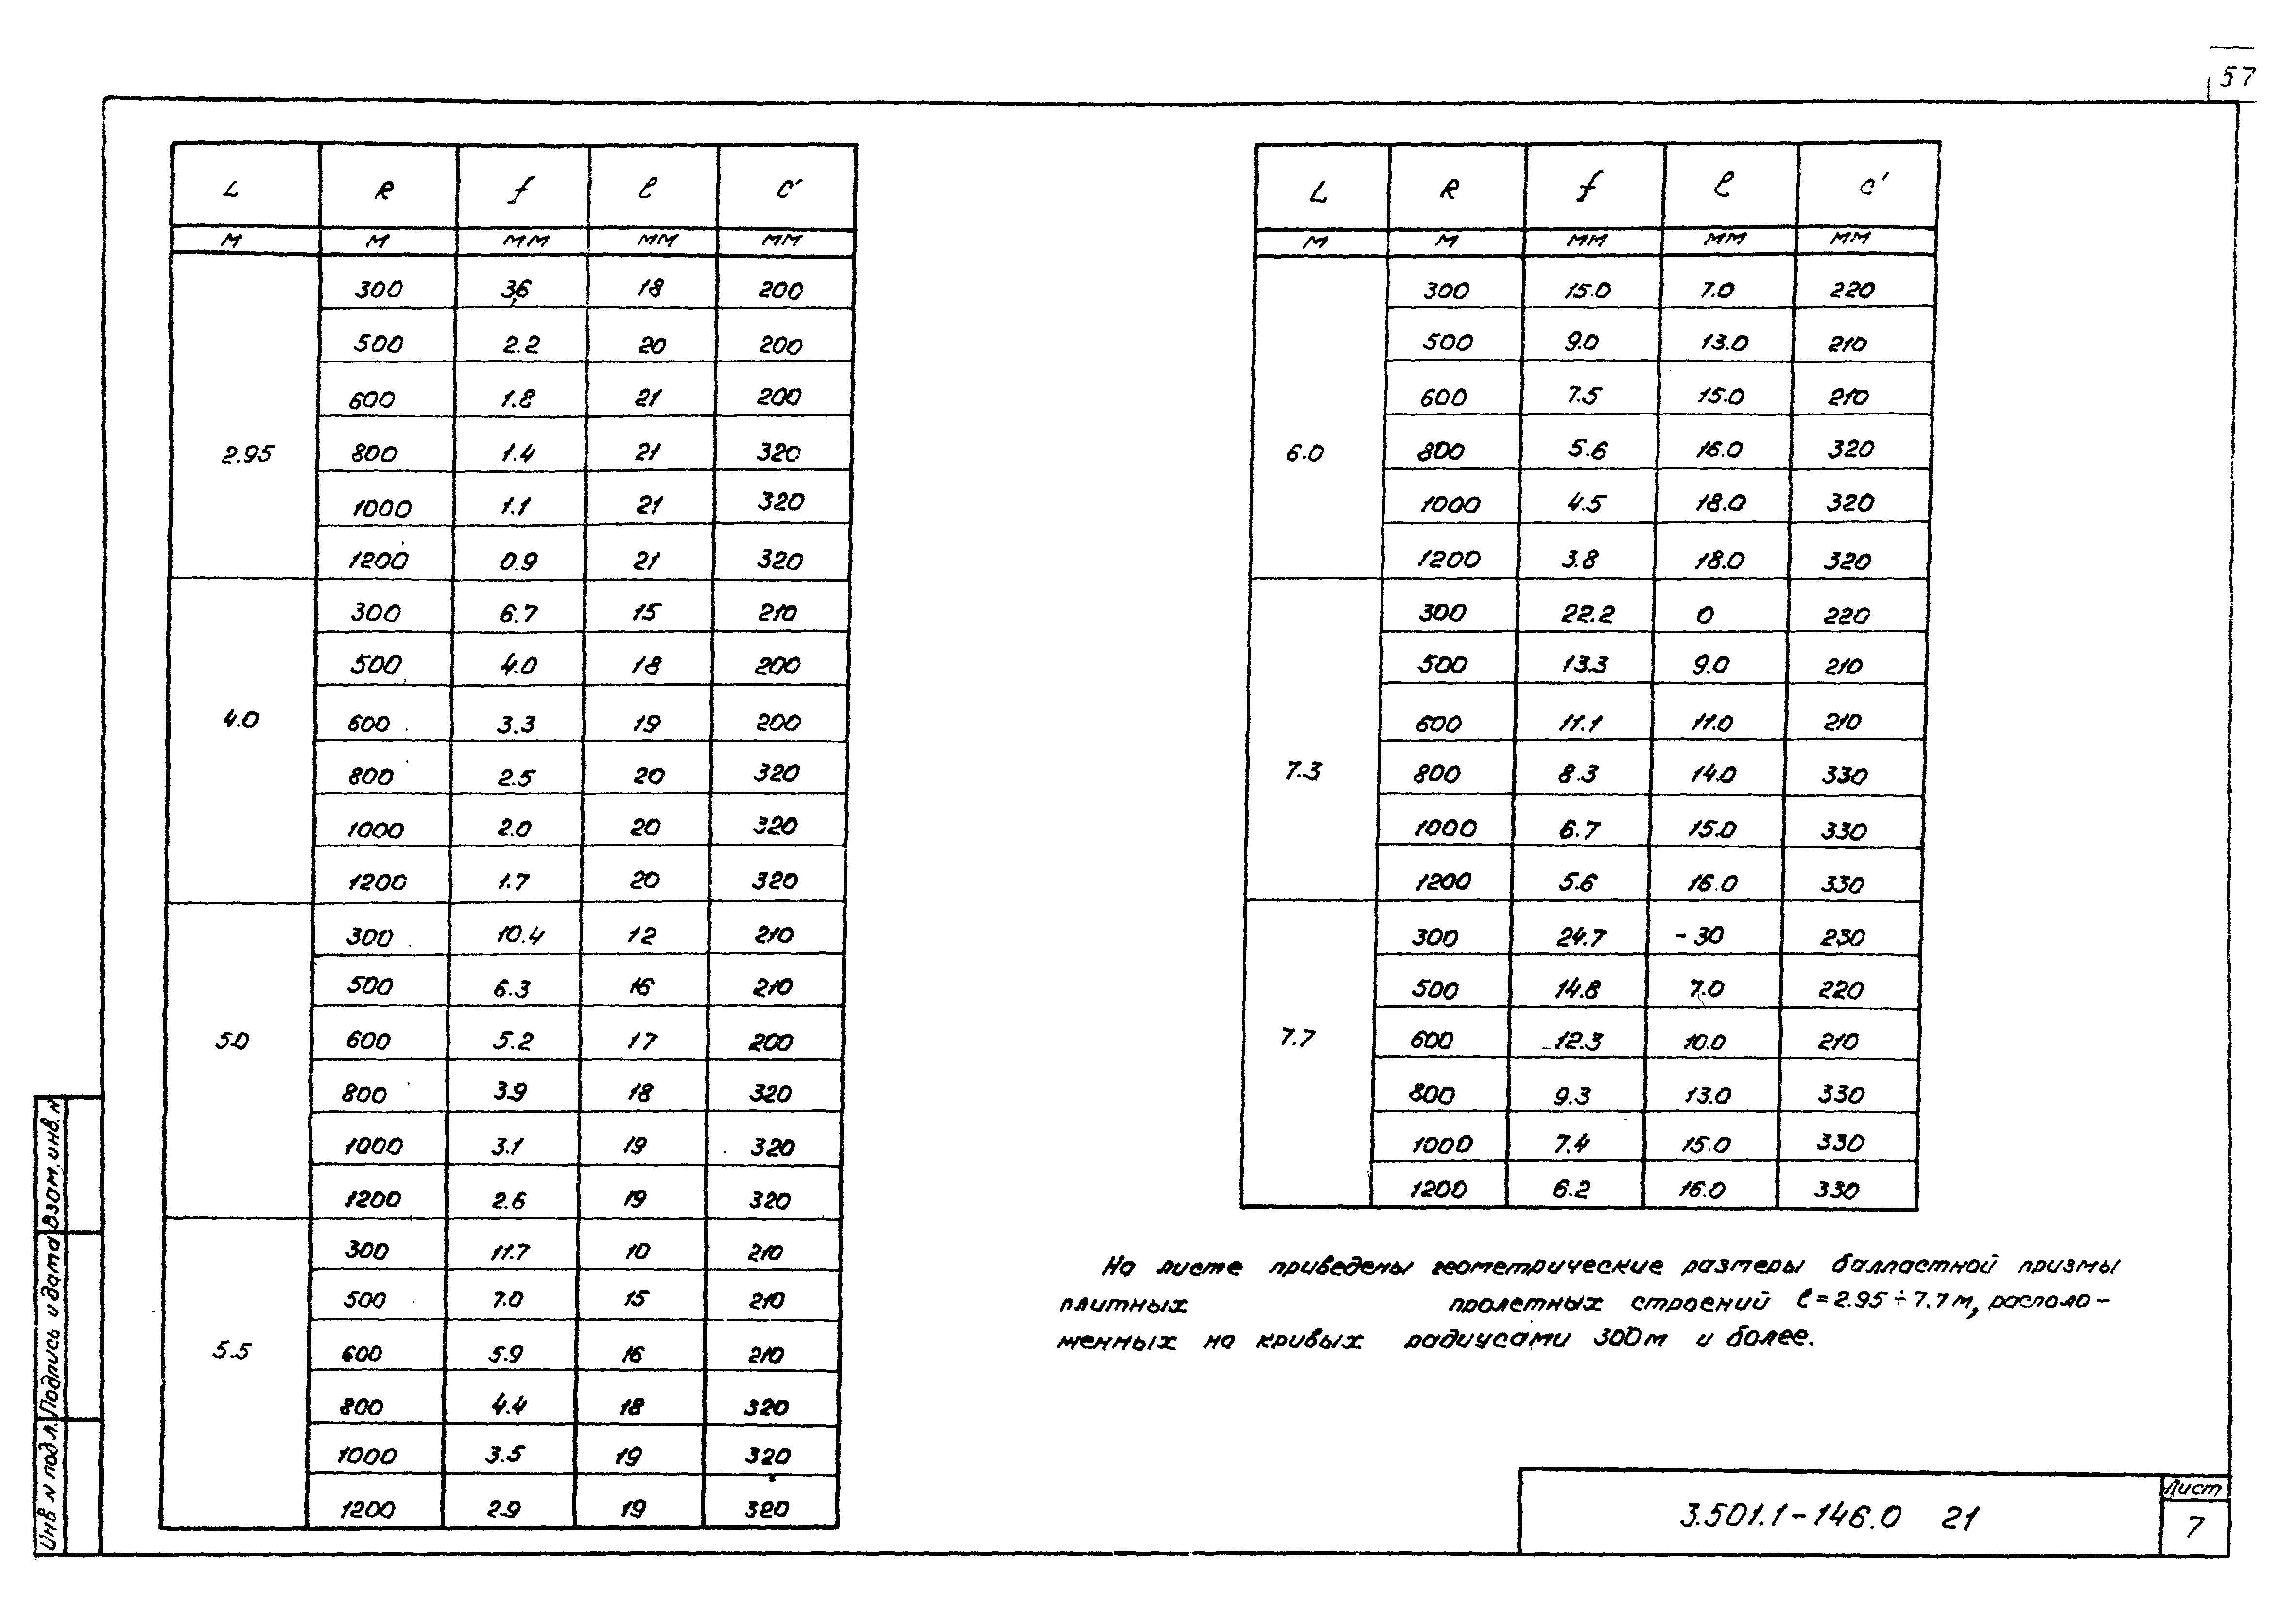 57
L R f ℓ c'
м м мм мм мм
2.95
300 3,6 18 200
500 2.2 20 200
600 1.8 21 200
800 1.4 21 320
1000 1.1 21 320
1200 0.9 21 320
4.0
300 6.7 15 210
500 4.0 18 200
600 3.3 19 200
800 2.5 20 320
1000 2.0 20 320
1200 1.7 20 320
5.0
300 10.4 12 210
500 6.3 16 210
600 5.2 17 200
800 3.9 18 320
1000 3.1 19 320
1200 2.6 19 320
5.5
300 11.7 10 210
500 7.0 15 210
600 5.9 16 210
800 4.4 18 320
1000 3.5 19 320
1200 2.9 19 320
L R f ℓ c'
м м мм мм мм
6.0
300 15.0 7.0 220
500 9.0 13.0 210
600 7.5 15.0 210
800 5.6 16.0 320
1000 4.5 18.0 320
1200 3.8 18.0 320
7.3
300 22.2 0 220
500 13.3 9.0 210
600 11.1 11.0 210
800 8.3 14.0 330
1000 6.7 15.0 330
1200 5.6 16.0 330
7.7
300 24.7 -30 230
500 14.8 7.0 220
600 12.3 10.0 210
800 9.3 13.0 330
1000 7.4 15.0 330
1200 6.2 16.0 330
На листе приведены геометрические размеры балластной призмы
плитных пролетных строений ℓ=2.95÷7.7м, располо-
женных на кривых радиусами 300м и более.
Инв N подл. Подпись и дата Взам. инв. N
3.501.1-146.0 21
Лист
7